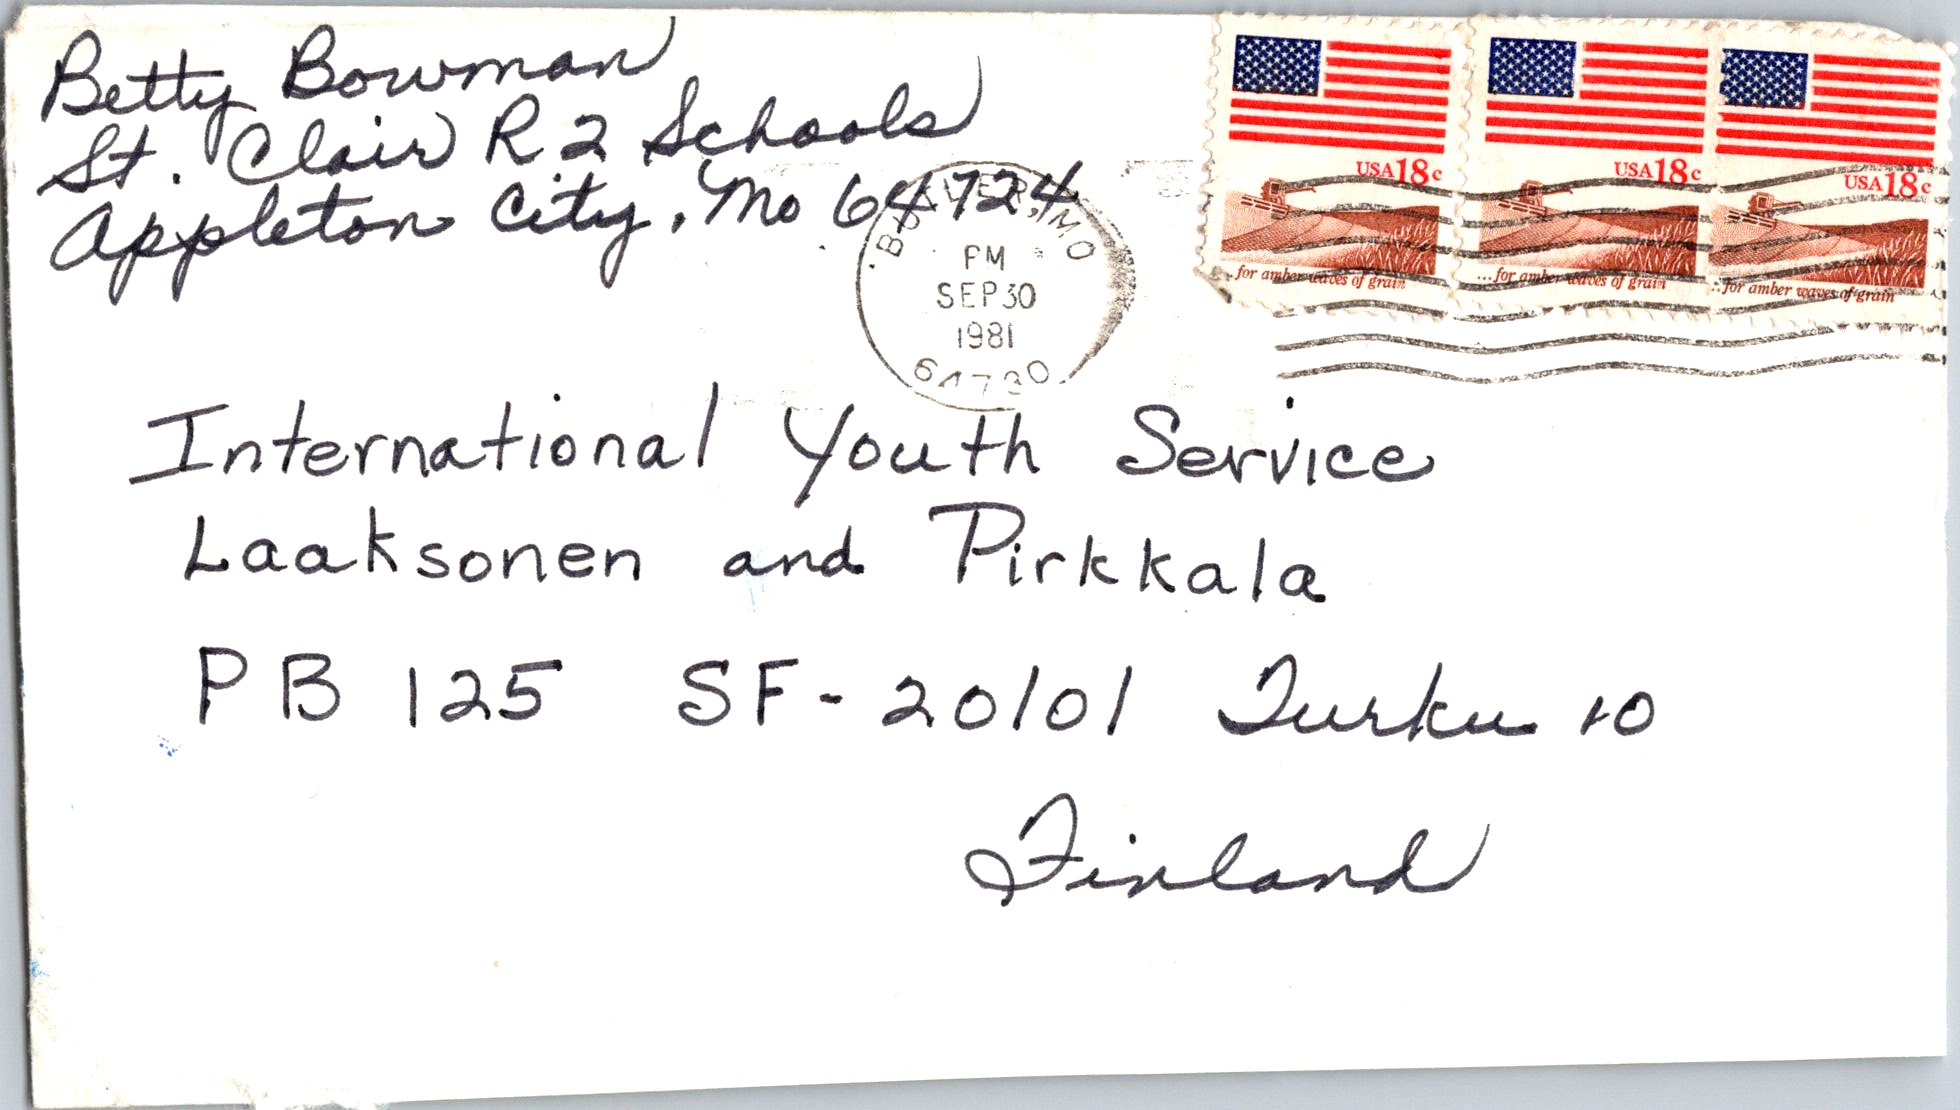 Betty Bowman
St. Clair R 2 Schools
Appleton City, Mo 64724
BUTLER, MO
PM
SEP 30
1981
64730
USA 18c
...for amber waves of grain
USA 18c
...for amber waves of grain
USA 18c
...for amber waves of grain
International Youth Service
Laaksonen and Pirkkala
PB 125 SF-20101 Turku 10
Finland